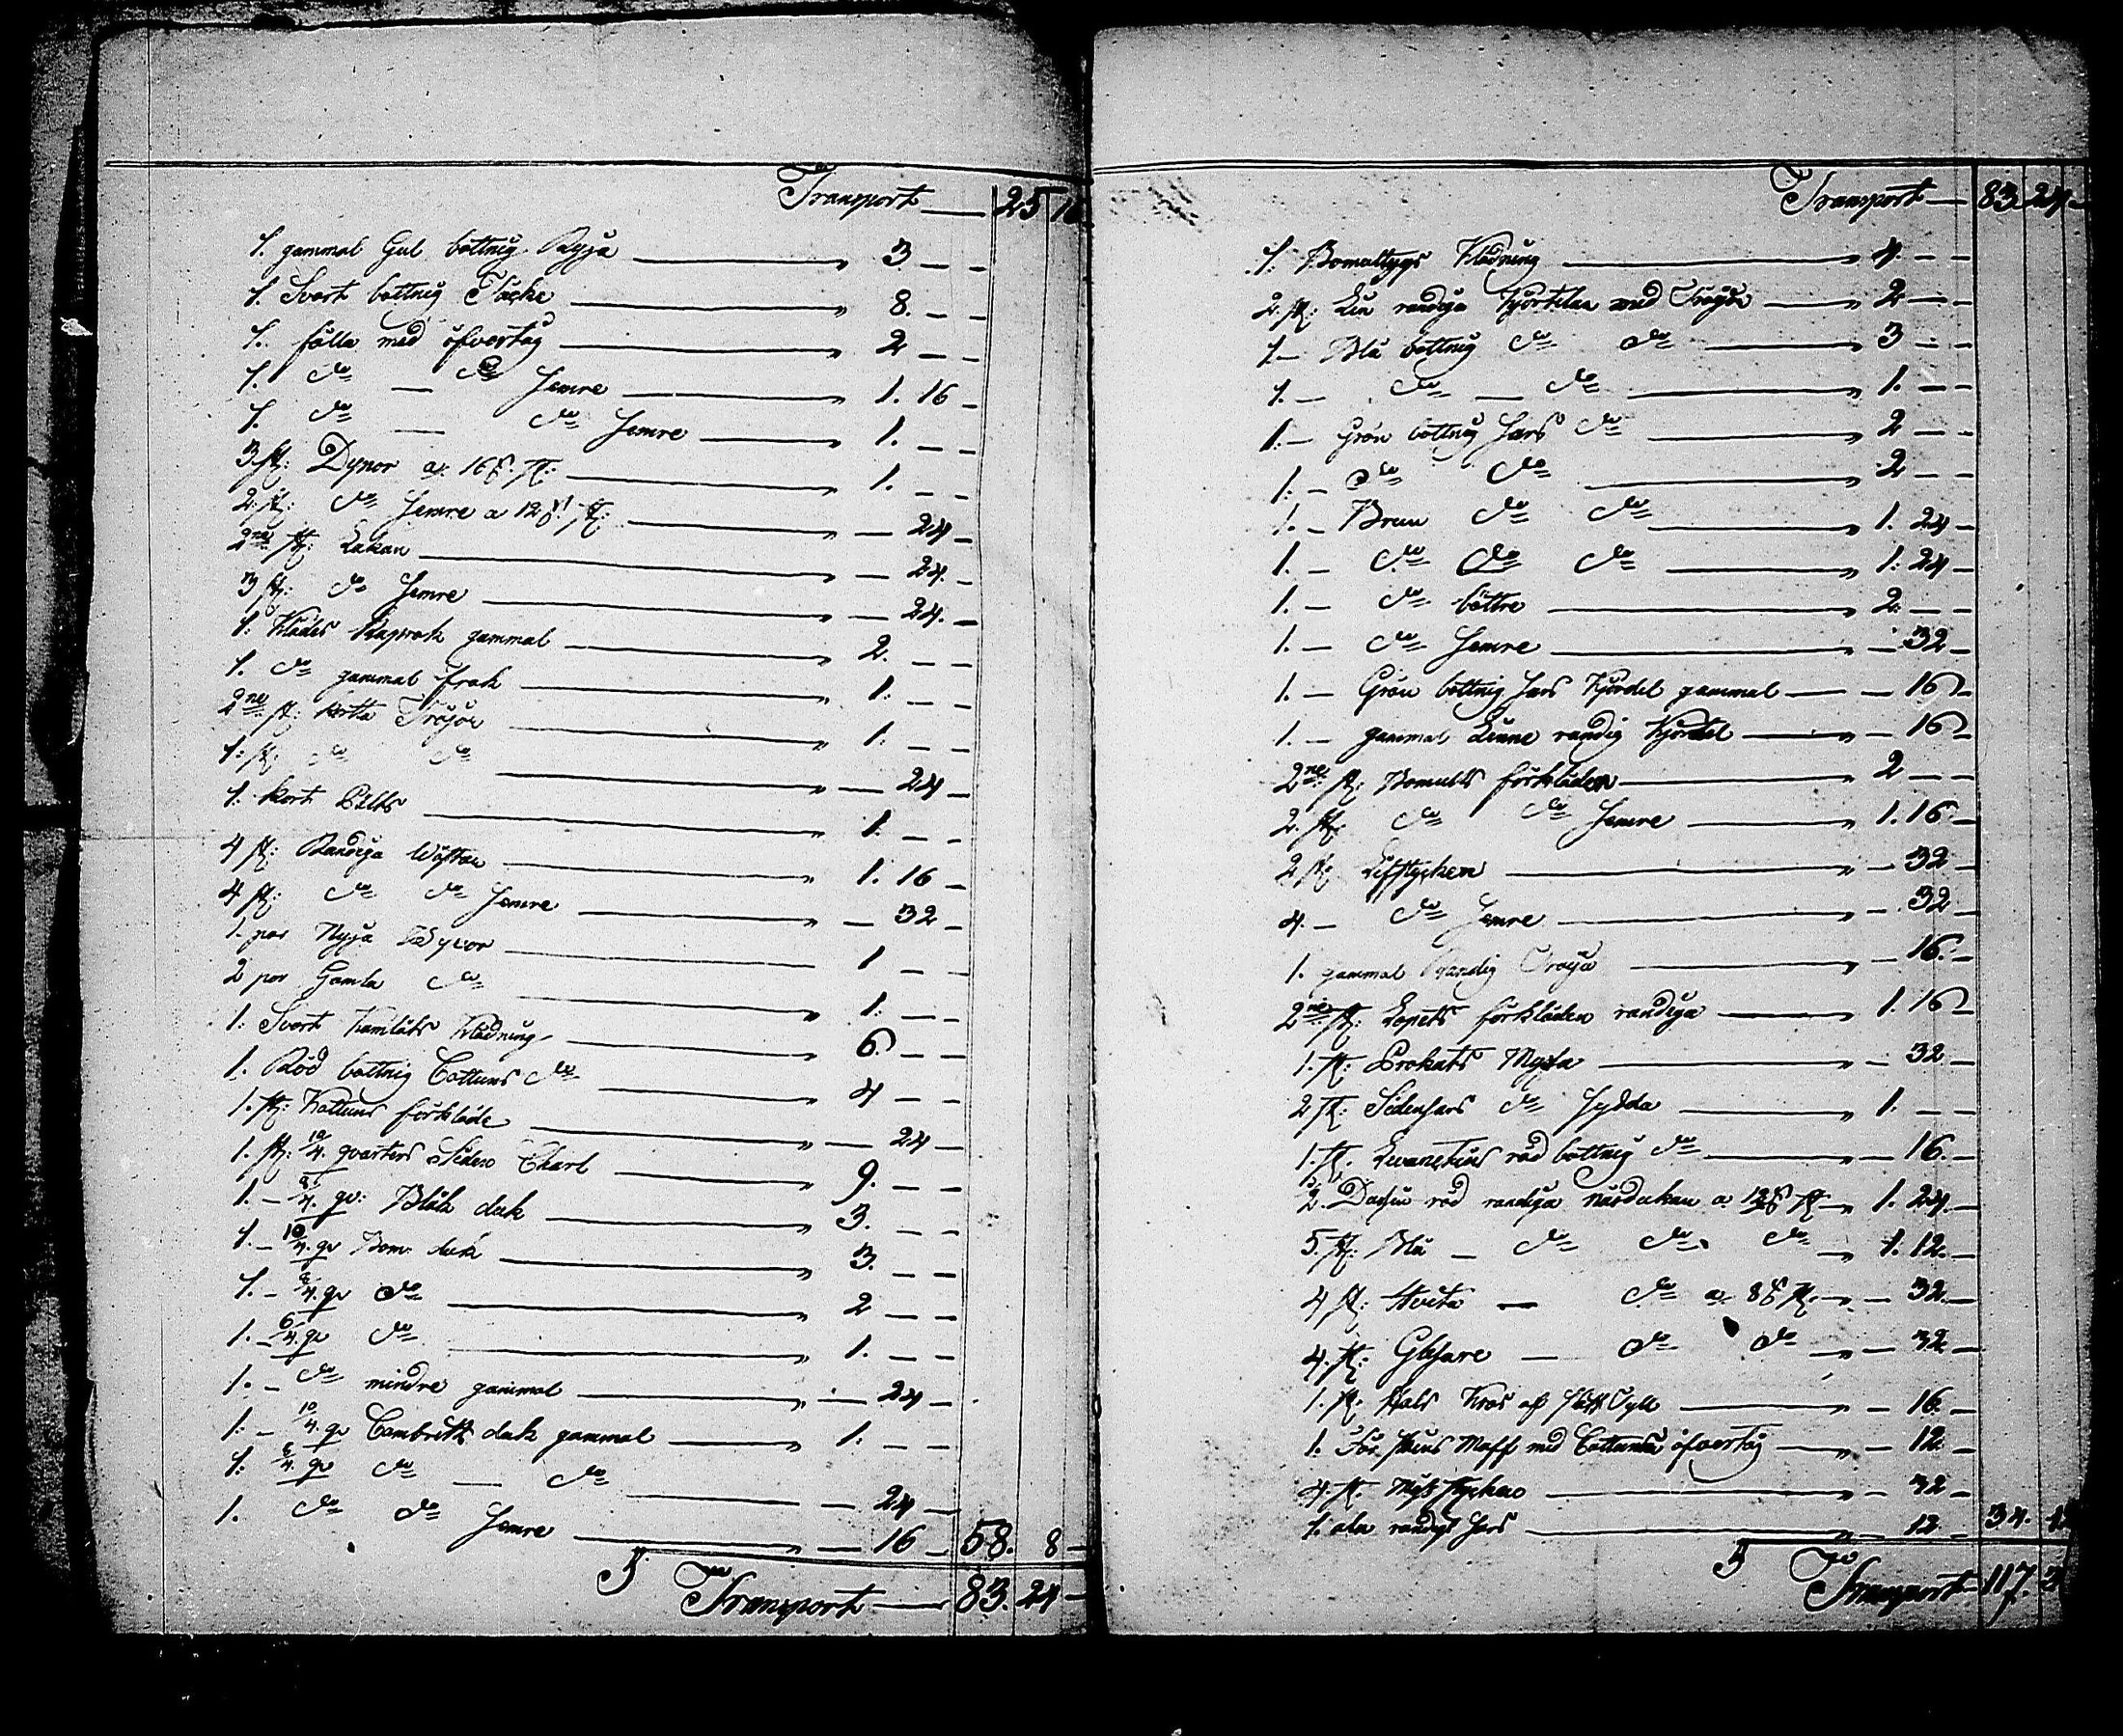 Transport — 25 16
1. gammal Gul bottnig Ryja — 3. — —
1. Svort bottnig Täcke — 8. — —
1. fälla med öfvertÿg — 2 — —
1. do — do Semre — 1. 16 —
1. do — do Semre — 1. — —
3 st: Dynor a 16 s. st: — 1. — —
2. st: do Semre a 12 s. st: — 24 —
2ne st: Lakan — 24. —
3 st: do Semre — 24. —
1. Klädes Kaprok gammal — 2. — —
1. do gammal frak — 1. — —
2ne st: korta Tröjor — 1. — —
1. st: do do — 24 —
1. kort Pelts — 1. — —
4 st: Randiga Wästar — 1. 16 —
4 st: do do Semre — 32 —
1. par Nyja Byxor — 1 — —
2 par Gamla do — 1. — —
1. Svort Kamlåts Klädning — 6. — —
1. Röd bottnig Cattuns do — 4 — —
1. st: Kattuns förkläde — 24 —
1. st: 10/4. qvarters Siden Charl — 9. — —
1. — 8/4. qv: Blåk duk — 3. — —
1. — 10/4. qv Bom. duk — 3. — —
1. — 8/4. qv do — 2 — —
1. — 6/4. qv do — 1. — —
1. — do mindre gammal — 24 —
1. — 10/4. qv Cambriks duk gammal — 1. — —
1. 8/4. qv do — do — 24 —
1. do do Semre — 16 — 58. 8 —
Transport — 83. 24 —
Transport — 83 24 —
1. Bomultygs Klädning — 4. — —
2. st: Lin randiga Kjortlar med Tröjor — 2 — —
1 — Blå bottnig do do — 3 — —
1. — do — do — 1. — —
1. — Grön bottnig Hars do — 2 — —
1. — do do — 2 — —
1. — Brun do do — 1. 24 —
1. — do do do — 1. 24 —
1. — do bättre — 2. — —
1. — do Semre — 32 —
1. — Grön bottnig Hars Kjordel gammal — 16 —
1. — gammal Linne randig Kjordel — 16 —
2ne st: Bomults förkläden — 2 — —
2. st: do do Semre — 1. 16 —
2 st: Lifstycken — 32 —
4. — do Semre — 32 —
1. gammal Randig Tröja — 16. —
2ne st: förkläden randiga — 1. 16
1. st: Brokats Myssa — 32 —
2 st: Sidenhars do Sydda — 1. — —
1. st. röd bottnig do — 16. —
2. Dusin röd randiga näsdukar a 12 s st — 1. 24. —
5. st: Blå — do do do — 1. 12. —
4 st: Hvita — do a 8 s st. — 32. —
4. st: Glesare — do do — 32 —
1. st. Hals Krås af Slätt Tyll — 16. —
1. Muff med Cattuns öfvertÿg — 12 —
4. st. Mys stycken — 32 —
1. aln randigt Hars — 12 — 34. 12
Transport — 117. 3